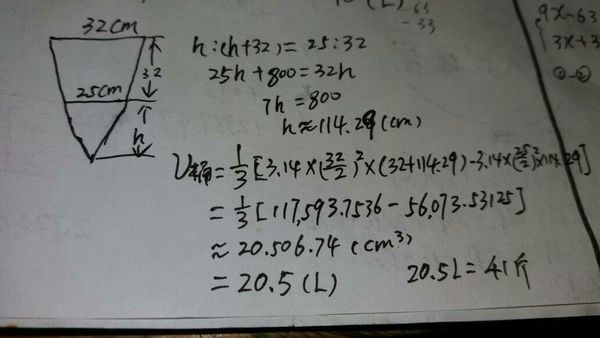 (L)
-63
-33
9x-63
3x+3
①-②
32cm
32
25cm
h
h:(h+32)=25:32
25h+800=32h
7h=800
h≈114.29(cm)
V桶=1/3[3.14×(32/2)²×(32+114.29)-3.14×(25/2)²×114.29]
=1/3[117,593.7536-56,073.53125]
≈20.506.74(cm³)
=20.5(L)
20.5L=41斤